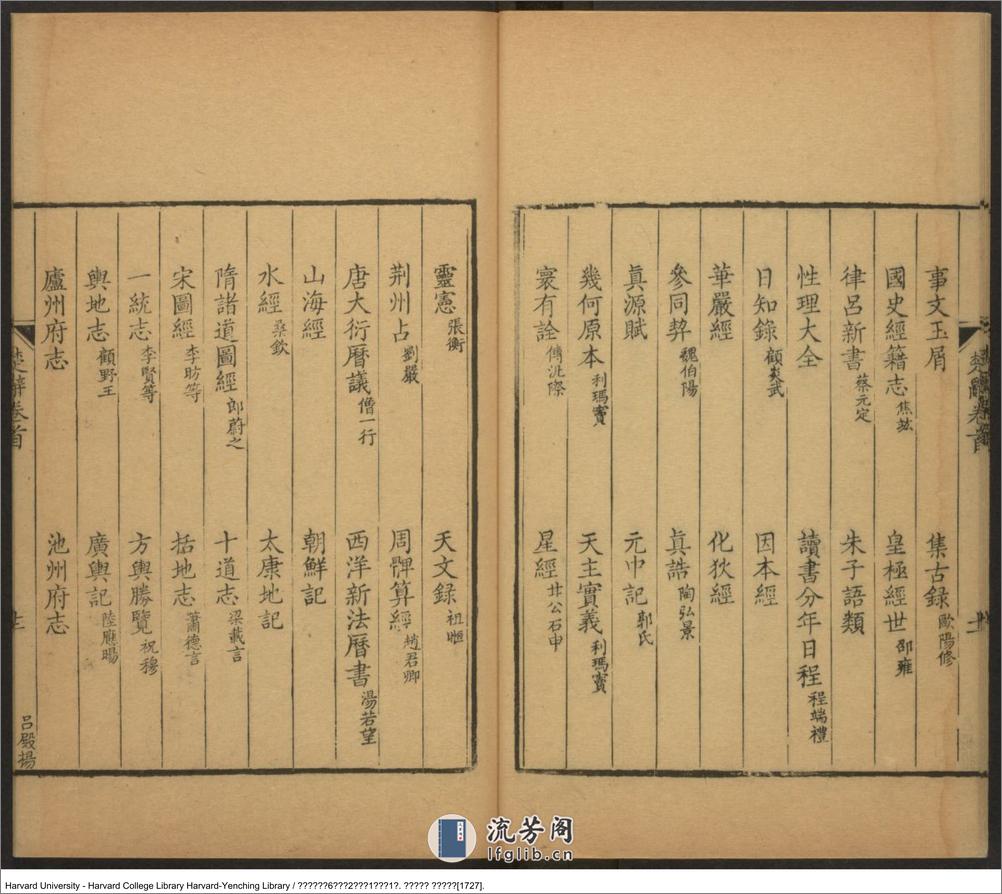 事文玉屑 集古錄 歐陽修
國史經籍志 焦竑 皇極經世 邵雍
律呂新書 蔡元定 朱子語類
性理大全 讀書分年日程 程端禮
日知錄 顧炎武 因本經
華嚴經 化狄經
參同契 魏伯陽 真誥 陶弘景
真源賦 元中記 郭氏
幾何原本 利瑪竇 天主實義 利瑪竇
寰有詮 傅汎際 星經 甘公石申
楚辭卷首
靈憲 張衡 天文錄 祖暅
荆州占 劉嚴 周髀算經 趙君卿
唐大衍曆議 僧一行 西洋新法曆書 湯若望
山海經 朝鮮記
水經 桑欽 太康地記
隋諸道圖經 郎蔚之 十道志 梁載言
宋圖經 李昉等 括地志 蕭德言
一統志 李賢等 方輿勝覽 祝穆
輿地志 顧野王 廣輿記 陸應暘
廬州府志 池州府志
楚辭卷首 呂殿揚
流芳阁
lfglib.cn
Harvard University - Harvard College Library Harvard-Yenching Library / ??????6???2???1???1?. ????? ?????[1727].